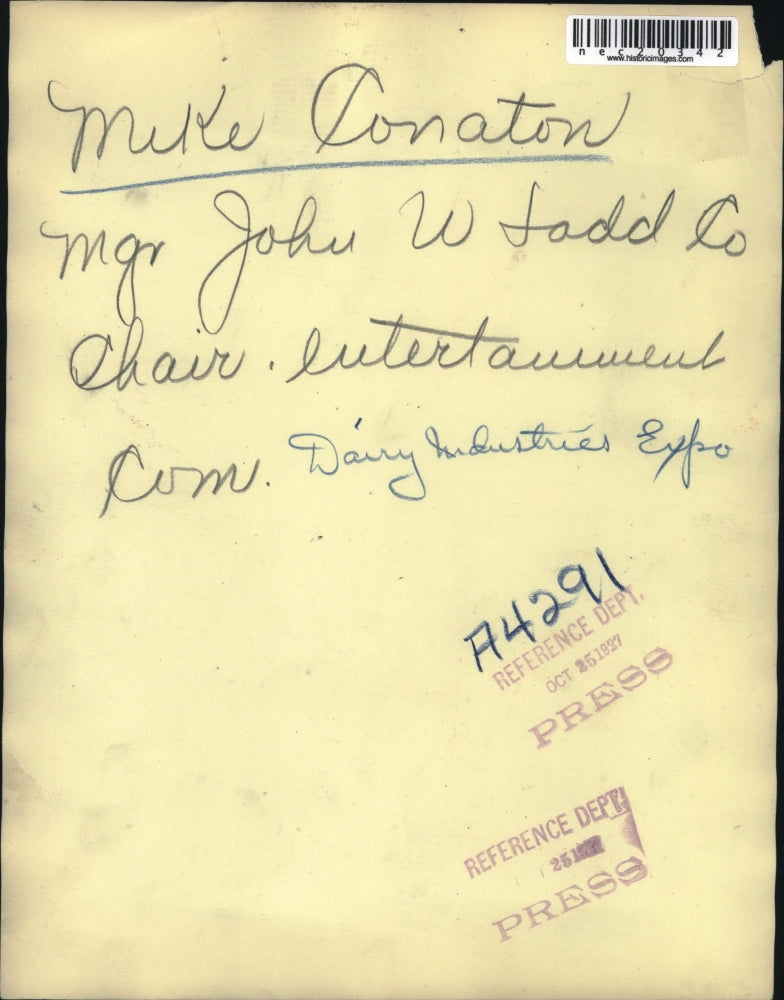 nec20342
www.historicimages.com
Mike Conaton
Mgr John W Ladd Co
Chair. entertainment
Com. Dairy Industries Expo
A4291
REFERENCE DEPT.
OCT 25 1927
PRESS
REFERENCE DEPT.
25
PRESS